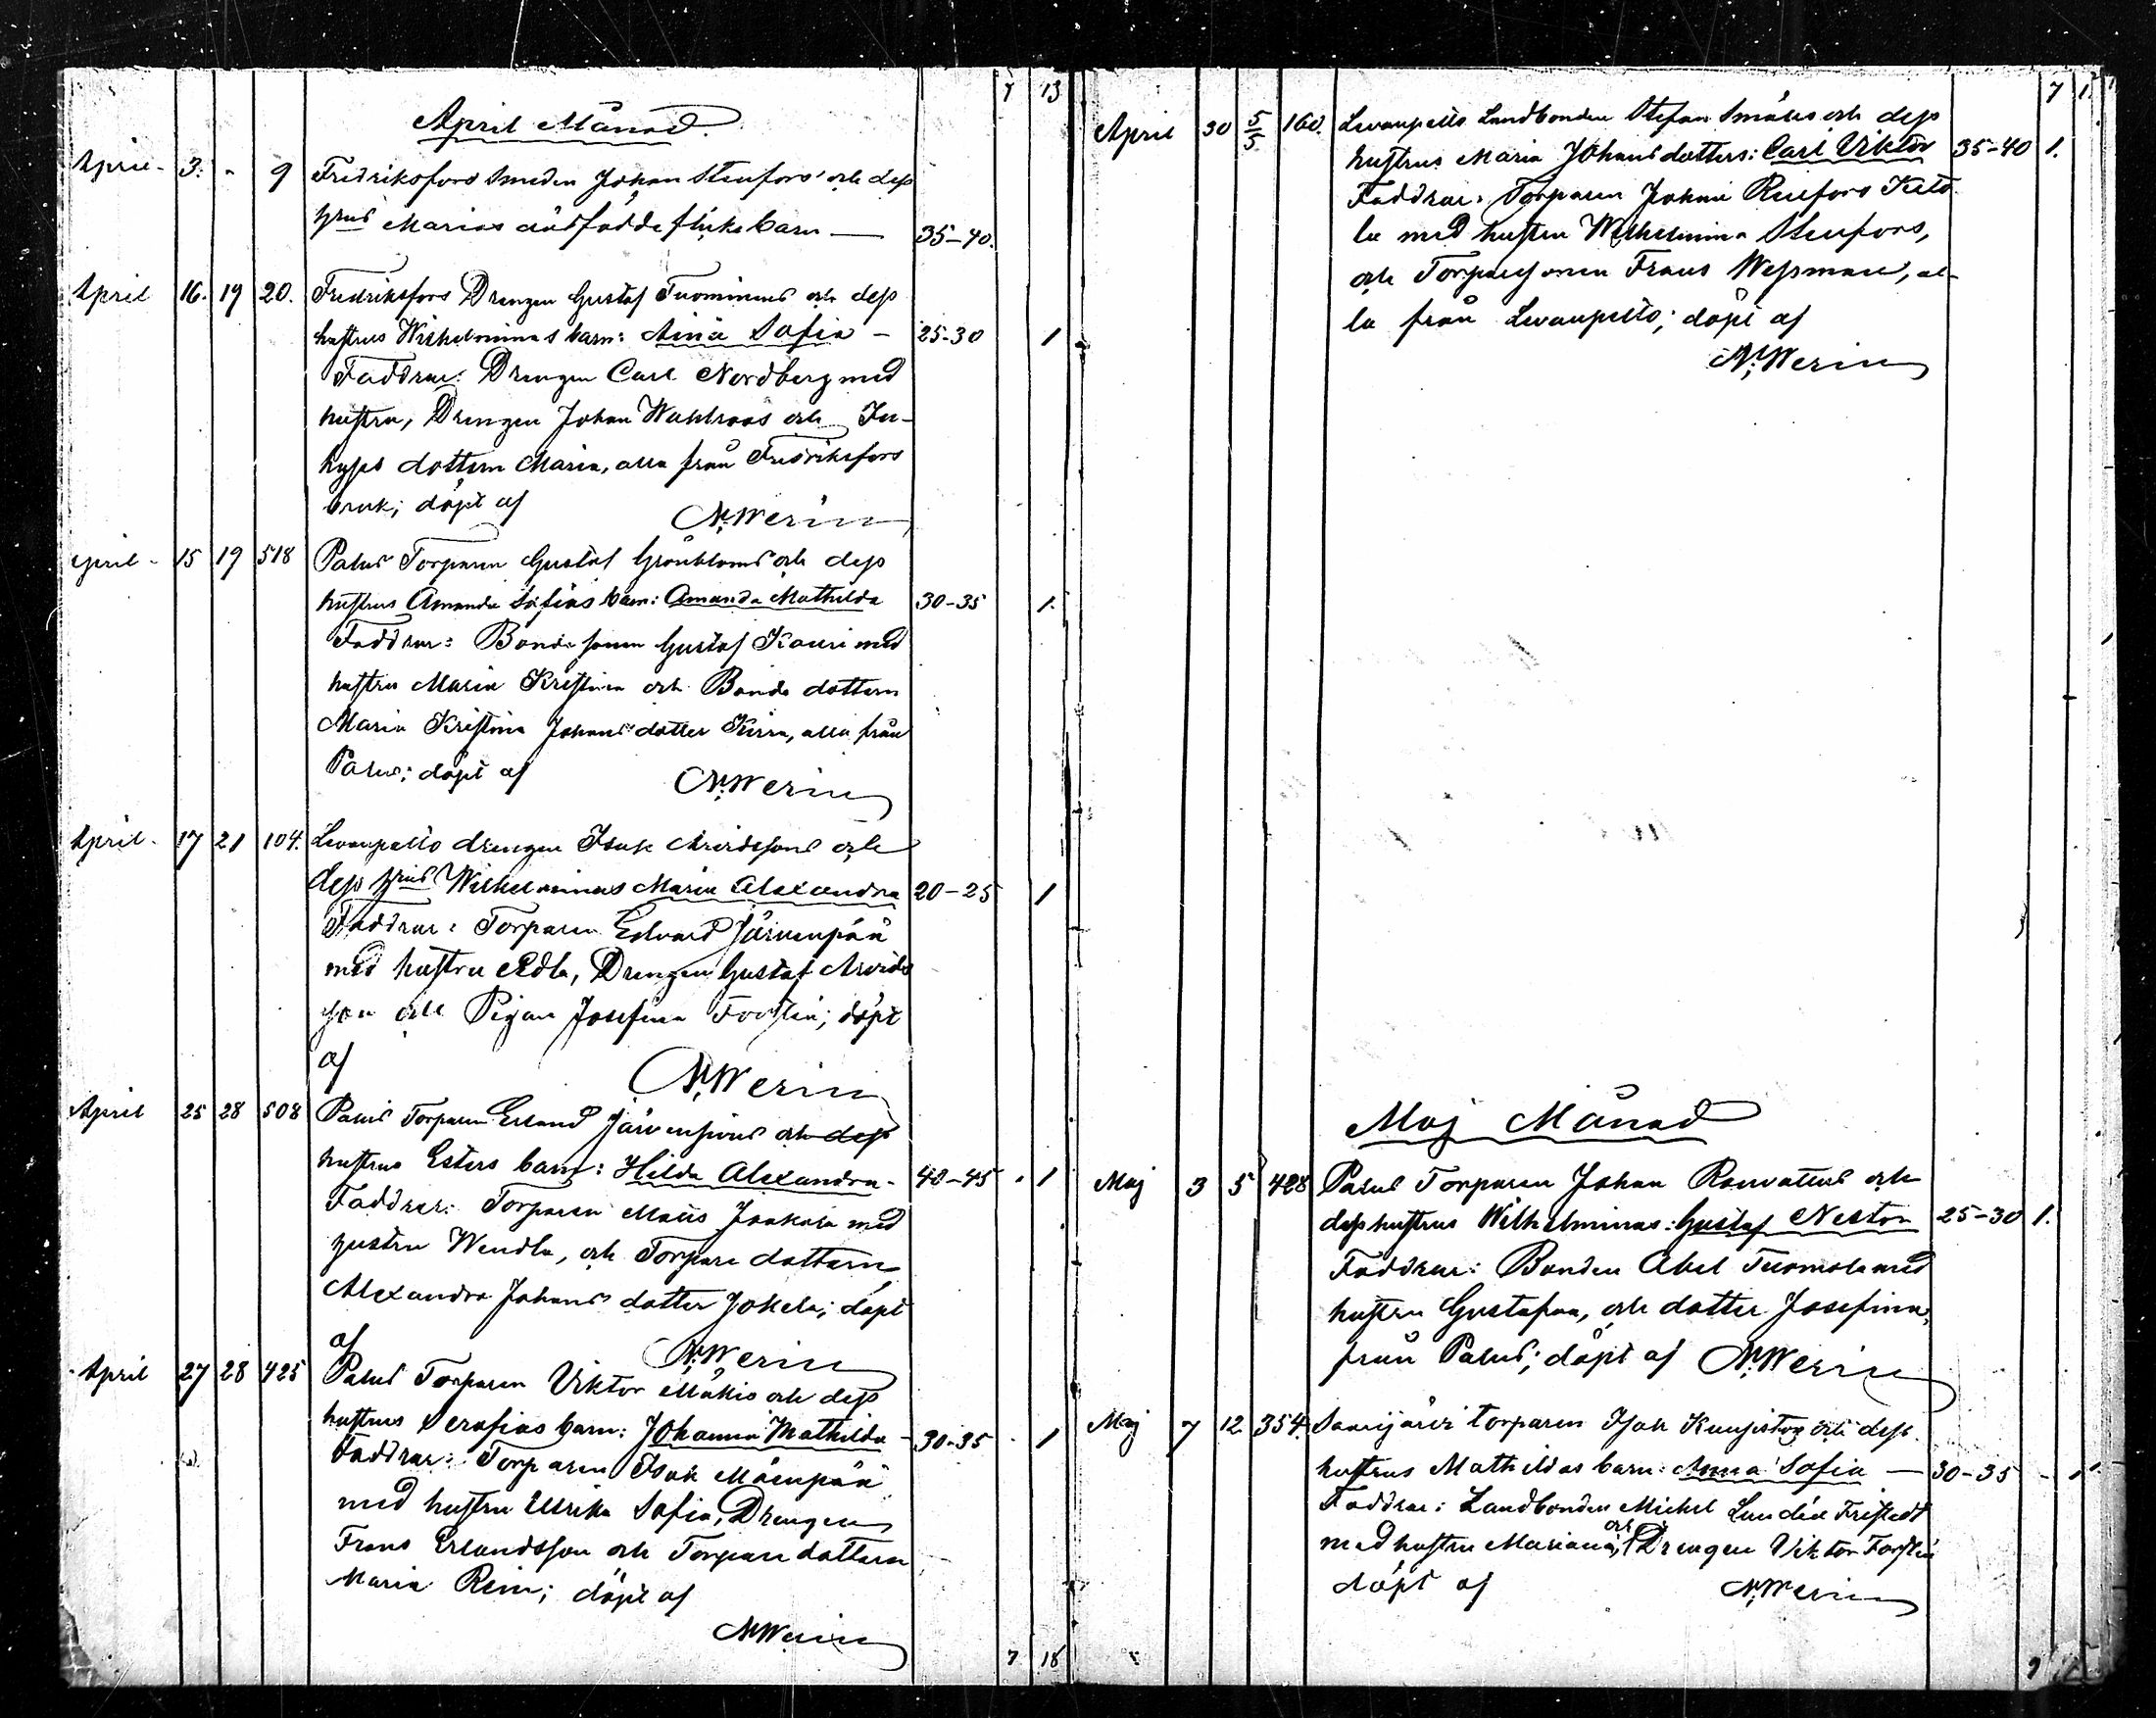 7 13
April Månad.
April - 3. - 9 Fredriksfors Smeden Johan Stenfors' och dess
hrus Marias dödfödde flickebarn — 35-40.
April 16. 19 20. Fredriksfors Drengen Gustaf Tuominens och dess
hustrus Wilhelminas barn: Aina Sofia - 25-30 1
Faddrar: Drengen Carl Nordberg med
hustru, Drengen Johan Wahlroos och In-
hyses dottern Maria, alla från Fredriksfors
bruk; döpt af N. Werin
April - 15 19 518 Palus Torparen Gustaf Grönbloms och dess
hustrus Amanda Sofias barn: Amanda Mathilda 30-35 1.
Faddrar: Bonde sonen Gustaf Kauri med
hustru Maria Kristina och Bonde dottern
Maria Kristina Johansdotter Kirra, alla från
Palus; döpt af N. Werin
April - 17 21 104. Levanpelto drengen Isak Arvidssons och
dess hrus Wilhelminas Maria Alexandra 20-25 1
Faddrar: Torparen Edvard Järvenpää
med hustru Edla, Drengen Gustaf Arvids
son och Pigan Josefina Forstén; döpt
af N. Werin
April 25 28 508 Palus Torparen Erland Järvensivus och dess
hustrus Esters barn: Hilda Alexandra - 40-45 1
Faddrar: Torparen Matts Jaakola med
hustru Wendla, och Torpare dottern
Alexandra Johans dotter Jokela; döpt
af N. Werin
April 27 28 425 Palus Torparen Viktor Mäkis och dess
hustrus Serafias barn: Johanna Mathilda - 30-35 1
Faddrar: Torparen Isak Mäenpää
med hustru Ulrika Sofia, Drengen
Frans Erlandsson och Torpare dottern
Maria Rein; döpt af
N. Werin
7 18
7 1
April 30 5/5 160. Levanpelto Landbonden Stefan Smäls och dess
hustrus Maria Johansdotters: Carl Viktor 35-40 1.
Faddrar: Torparen Johan Renfors Ketö
la med hustru Wilhelmina Stenfors,
och Torparesonen Frans Wessman, al-
la från Levanpelto; döpt af
N. Werin
Maj Månad
Maj 3 5 428 Palus Torparen Johan Rauvatius och
dess hustrus Wilhelminas: Gustaf Nestor 25-30 1.
Faddrar: Bonden Abel Tuomola med
hustru Gustafva, och dotter Josefina,
från Palus; döpt af N. Werin
Maj 7 12 354. Samijärvi torparen Isak Kunjistos och dess
hustrus Mathildas barn: Anna Sofia — 30-35 - 1
Faddrar: Landbonden Michel Lundén Fristedt
med hustru Mariana, och Drengen Viktor Forstén
döpt af N. Werin